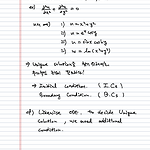 ex) ∂²u/∂x² + ∂²u/∂y² = 0
1) u = x² - y²
2) u = eˣ cos y
3) u = sin x cosh y
4) u = ln(x² + y²)
→ Unique solution을
→ Initial condition. (I.Cs)
Boundary Condition. (B.Cs)
Likewise ODE, to decide Unique
Solution, we need additional
condition.